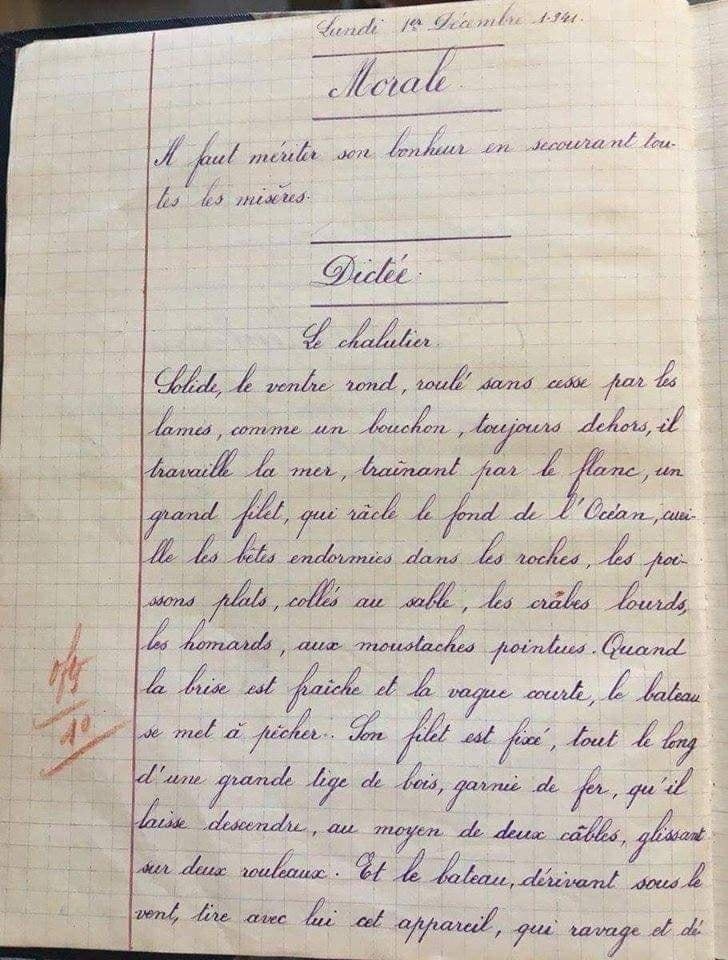 Lundi 1er Décembre 1941.
Morale.
Il faut mériter son bonheur en secourant tou-
tes les misères.
Dictée.
Le chalutier.
Solide, le ventre rond, roulé sans cesse par les
lames, comme un bouchon, toujours dehors, il
travaille la mer, traînant par le flanc, un
grand filet, qui râcle le fond de l'Océan, cuei-
lle les bêtes endormies dans les roches, les poi-
ssons plats, collés au sable, les crabes lourds,
les homards, aux moustaches pointues. Quand
la brise est fraîche et la vague courte, le bateau
se met à pêcher. Son filet est fixé, tout le long
d'une grande tige de bois, garnie de fer, qu'il
laisse descendre, au moyen de deux câbles, glissant
sur deux rouleaux. Et le bateau, dérivant sous le
vent, tire avec lui cet appareil, qui ravage et dé
10